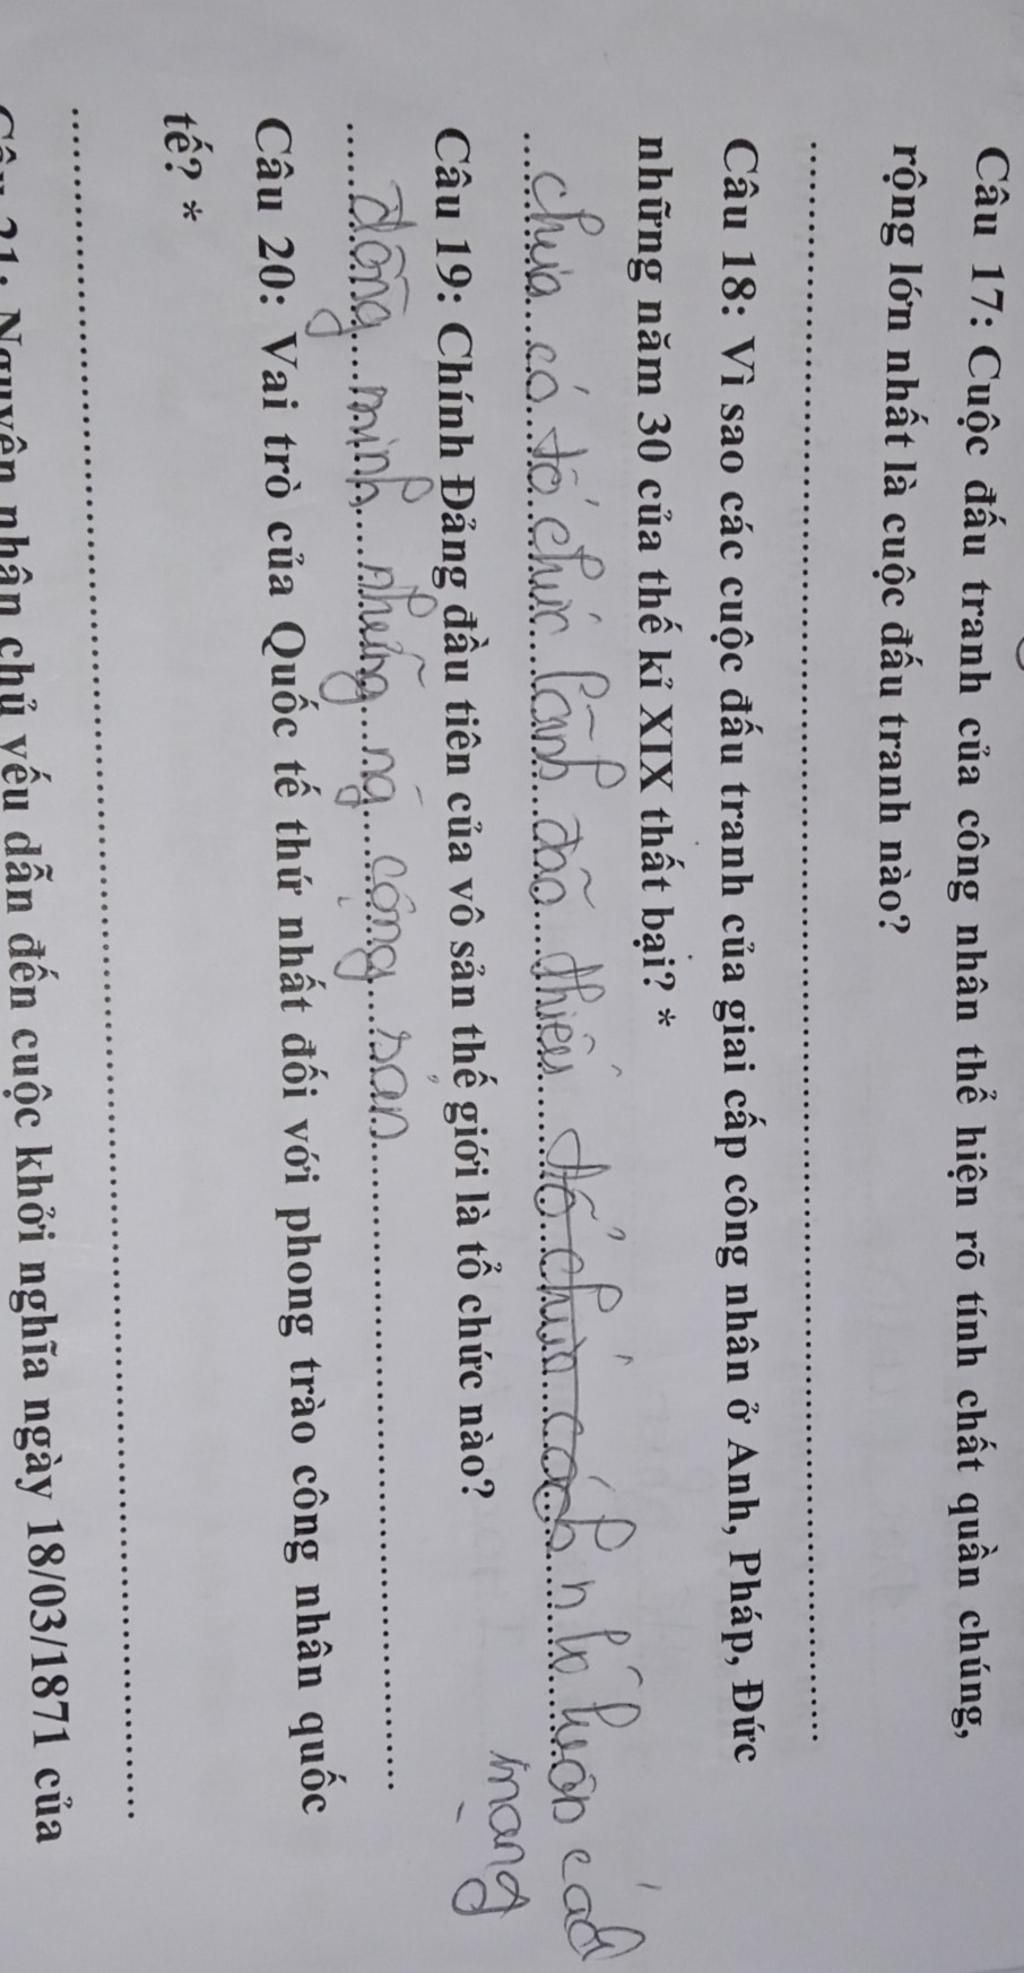 Câu 17: Cuộc đấu tranh của công nhân thể hiện rõ tính chất quần chúng,
rộng lớn nhất là cuộc đấu tranh nào?
Câu 18: Vì sao các cuộc đấu tranh của giai cấp công nhân ở Anh, Pháp, Đức
những năm 30 của thế kỉ XIX thất bại? *
chưa có tổ chức lãnh đạo thiếu lí luận cách
mạng
Câu 19: Chính Đảng đầu tiên của vô sản thế giới là tổ chức nào?
đồng minh những ng cộng sản
Câu 20: Vai trò của Quốc tế thứ nhất đối với phong trào công nhân quốc
tế? *
Câu 21: Nguyên nhân chủ yếu dẫn đến cuộc khởi nghĩa ngày 18/03/1871 của